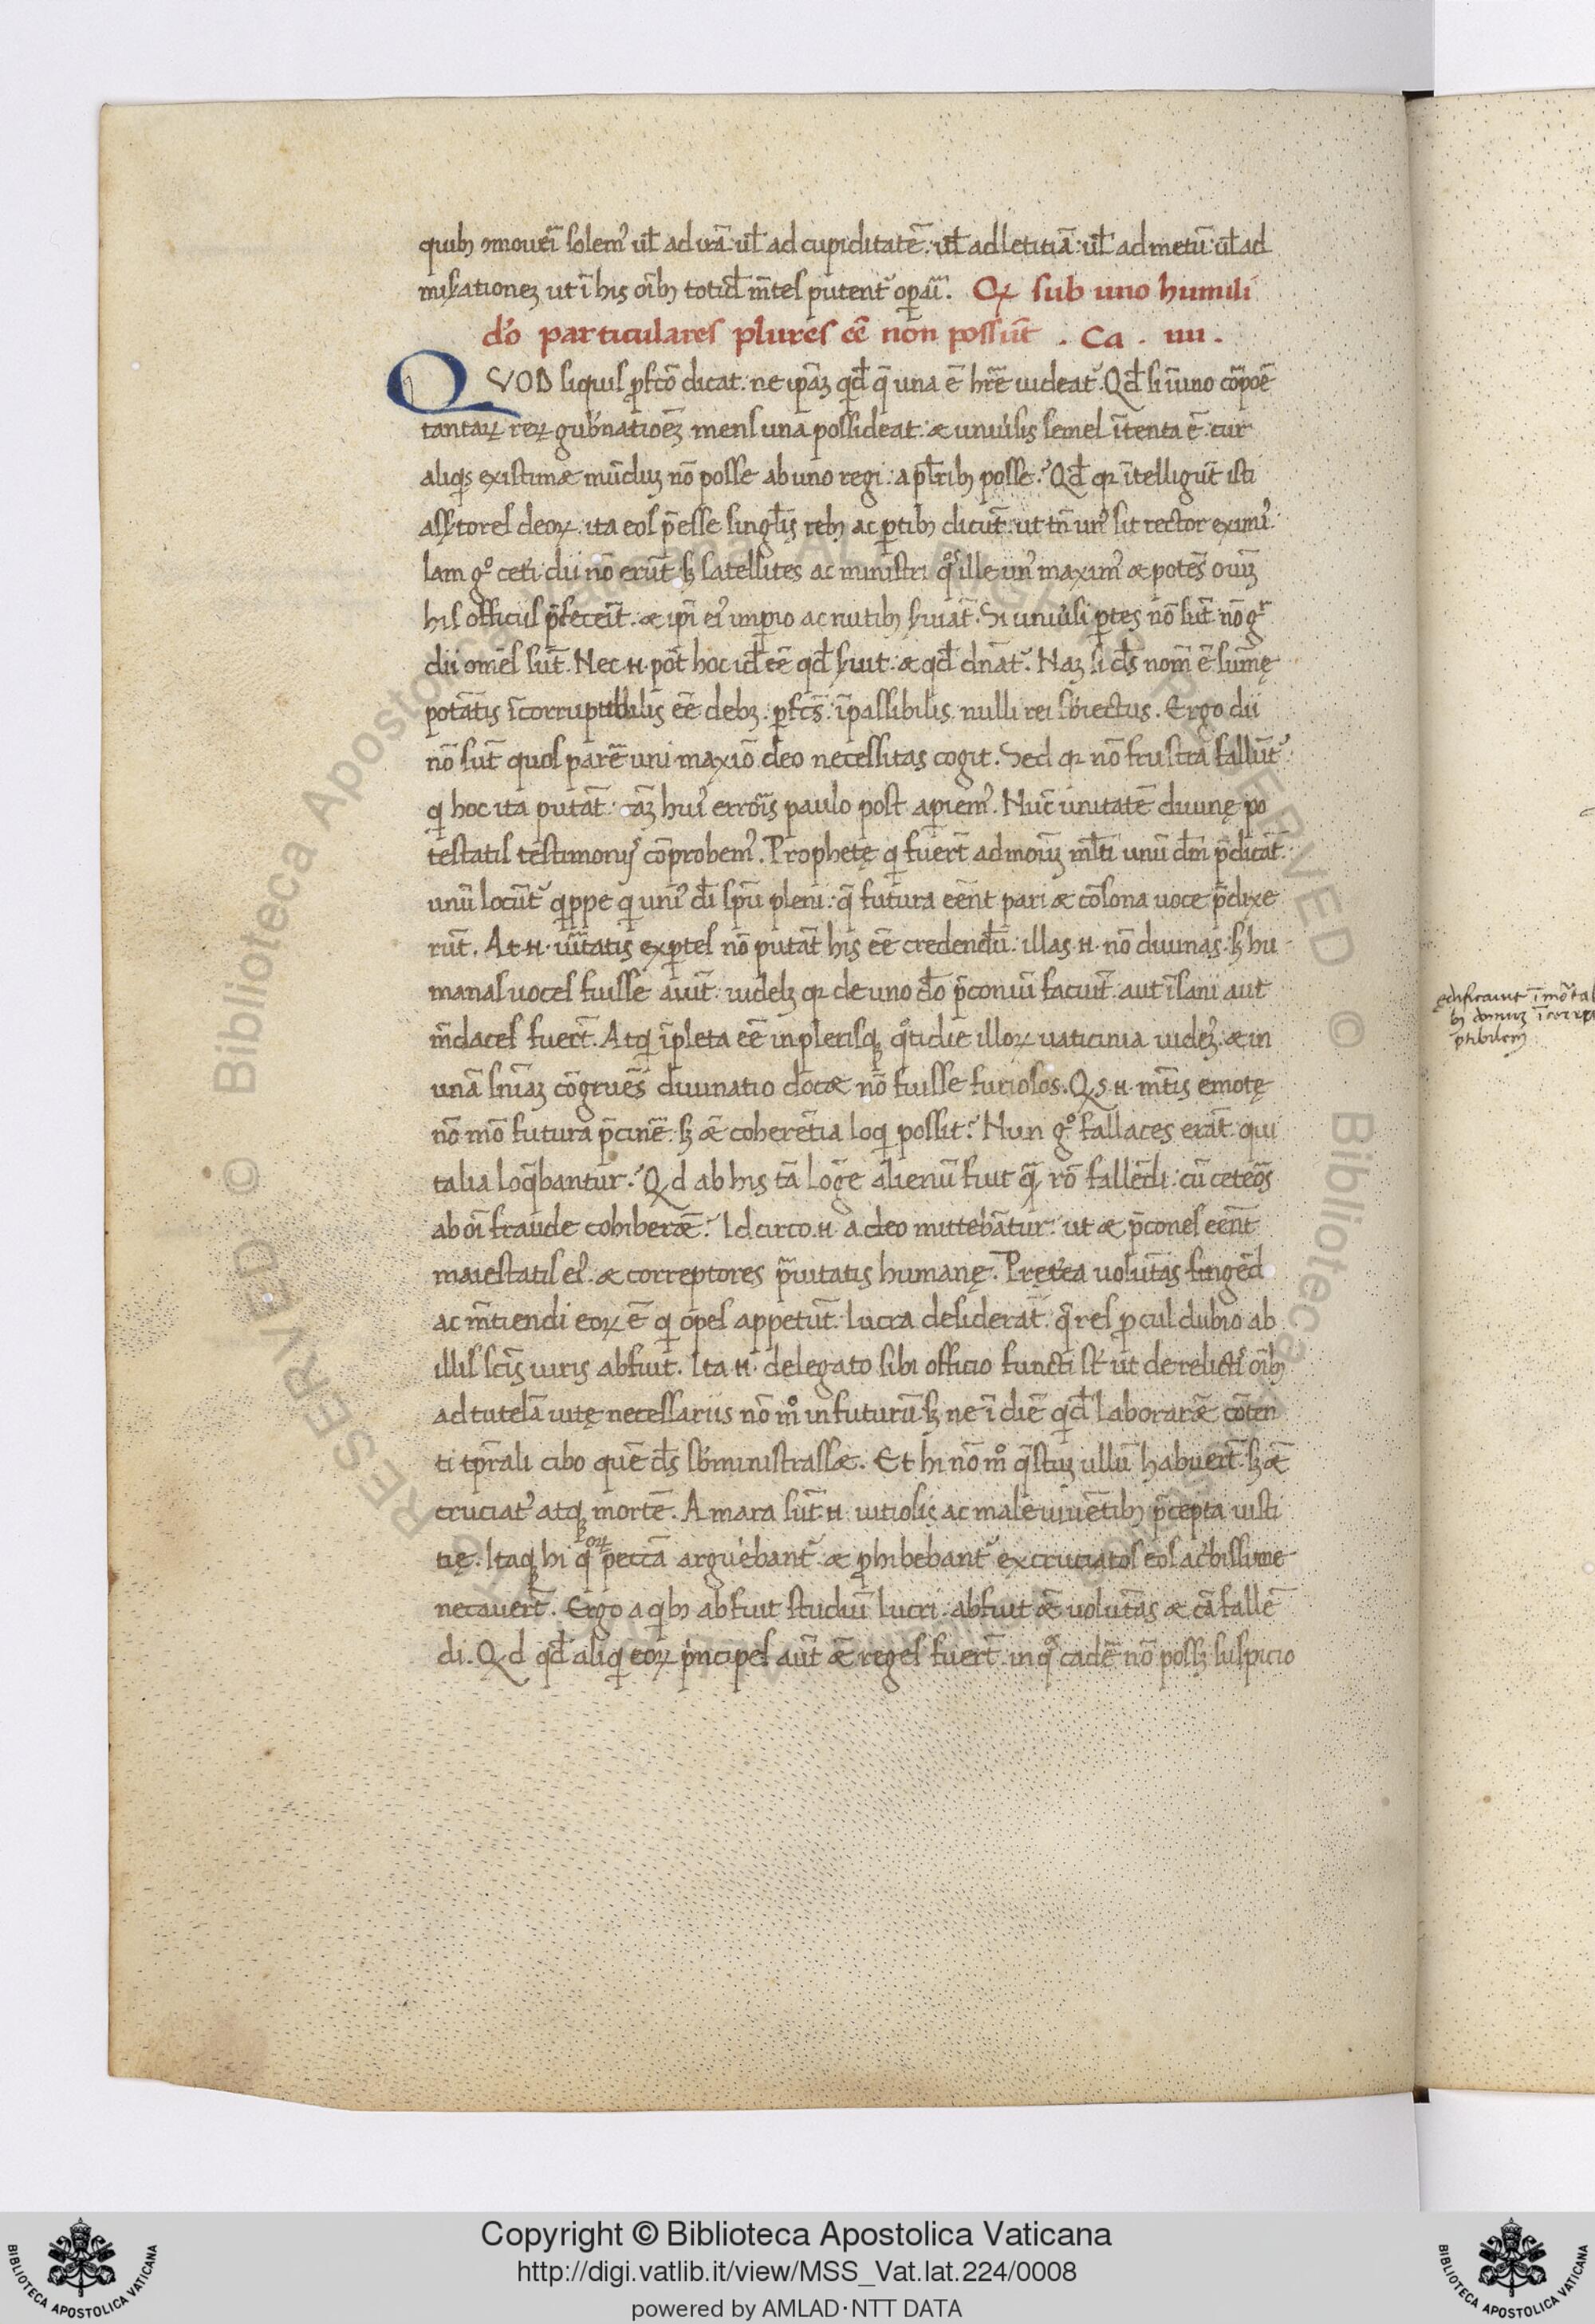 quibꝫ ꝯmoueri solemꝰ ul̄ ad irā: ul̄ ad cupiditatē: ul̄ ad letitiā: ul̄ ad metū: ul̄ ad
misationeꝫ ut ī his oībꝫ totid̄ m̄tes putent᷑ oꝑari.
Qꝛ sub uno humili
dō particulares plures eē non possūt . Ca . iiii .
QVOD siquis ꝑfcō dicat: ne ip̄aꝫ qd̄ q̄ una ē hr̄e uideat᷑. Qd̄ si ī uno
tantaꝝ reꝝ gub̄natioēꝫ mens una possideat: æ uniūsis semel ītenta ē: cur
aliqs existimæ mūduꝫ nō posse ab uno regi: a pl̄ribꝫ posse? Qd̄ qꝛ ītelligūt isti
deoꝝ: ita eos p̄esse singl̄is rebꝫ ac ꝑtibꝫ dicūt: ut tn̄ unꝰ sit rector eximiꝰ.
Iam gͦ cet̄i dii nō erūt sꝫ satellites ac ministri qͦs ille unꝰ maximꝰ æ potēs oīuꝫ
his officiis p̄fecerīt: æ ip̄i eiꝰ imꝑio ac nutibꝫ Si uniūsi ꝑtes nō sūt: nō gͬ
dii omēs sūt. Nec .н. pōt hoc id̄ eē qd̄ suit: æ qd̄ dn̄at᷑. Naꝫ si ds̄ nom̄ ē sūmę
potātis īcorruptibilis eē debꝫ. ꝑfcs̄. īpassibilis. nulli rei sb̄iectus. Ergo dii
nō sūt quos parē uni maxiō deo necessitas cogit. Sed qꝛ nō frustra fallūt᷑
qi hoc ita putāt: huiꝰ erroris paulo post aꝑiemꝰ. Nūc unitatē diuinę po
testatis testimonijs cōprobemꝰ. Prophetę qi fuert̄ admoꝰ ml̄ti unū dm̄ p̄dicāt:
unū locūt᷑ qippe qi uniꝰ dī spū pleni: q̄ futura eēnt pari æ cōsona uoce p̄dixe
rūt. At .н. uītatis exꝑtes nō putāt his eē credendū: illas .н. nō diuinas: sꝫ hu
manas uoces fuisse aiūt: uidelꝫ qꝛ de uno dō p̄coniū faciūt: aut īsani aut
m̄daces fuert̄. Atqi īpleta eē in plerisqꝫ qͦtidie illoꝝ uaticinia uidēꝰ: æ in
unā sn̄iaꝫ cōgruēs diuinatio docæ nō fuisse furiosos. Qs .н. m̄tis emotę
nō mō futura p̄cinē: sꝫ ǣ coherētia loqi possit? Nun gͦ fallaces erāt: qui
talia loq̄bantur? Qd ab his tā lōge alienū fuit q̄ rō fallēdi: cū ceteos
ab oī fraude cohiberǣ? Idcirco .н. a deo mittebātur: ut æ p̄cones eēnt
maiestatis eiꝰ: æ correptores p̄uitatis humanę. Pręt̄ea volūtas fingēd
ac m̄tiendi eoꝝ ē qi opes appetūt: lucra desiderāt: q̄ res ꝓcul dubio ab
illis scīs uiris abfuit. Ita .н. delegato sibi officio functi st̄ ut derelictꝭ oībꝫ
ad tutelā uitę necessariis nō mͦ in futurū: sꝫ ne ī diē qd̄ laborarǣ cōten
ti tꝑrali cibo quē ds̄ sb̄ministrassæ. Et hi nō mͦ q̄stuꝫ ullū habuert̄: sꝫ ǣ
cruciatꝰ atqꝫ mortē. Amara sūt .н. uitiosis ac male uiuētibꝫ p̄cepta iusti
tię. Itaqꝫ hi qoꝝ peccā arguebant᷑: æ ꝓhibebant᷑ excruciatos eos ac̄bissime
necauert̄. Ergo a qibꝫ abfuit studiū lucri: abfuit ǣ volūtas æ cā fallē
di. Qd qd̄ aliqi eoꝝ pͥncipes aūt ǣ reges fuert̄: in qͦs cadē nō possꝫ suspicio
ędificauit ī mōtal
bꝫ domuꝫ īcorru
ptibilem
Copyright © Biblioteca Apostolica Vaticana
http://digi.vatlib.it/view/MSS_Vat.lat.224/0008
powered by AMLAD·NTT DATA
BIBLIOTECA APOSTOLICA VATICANA
BIBLIOTECA APOSTOLICA VATICANA